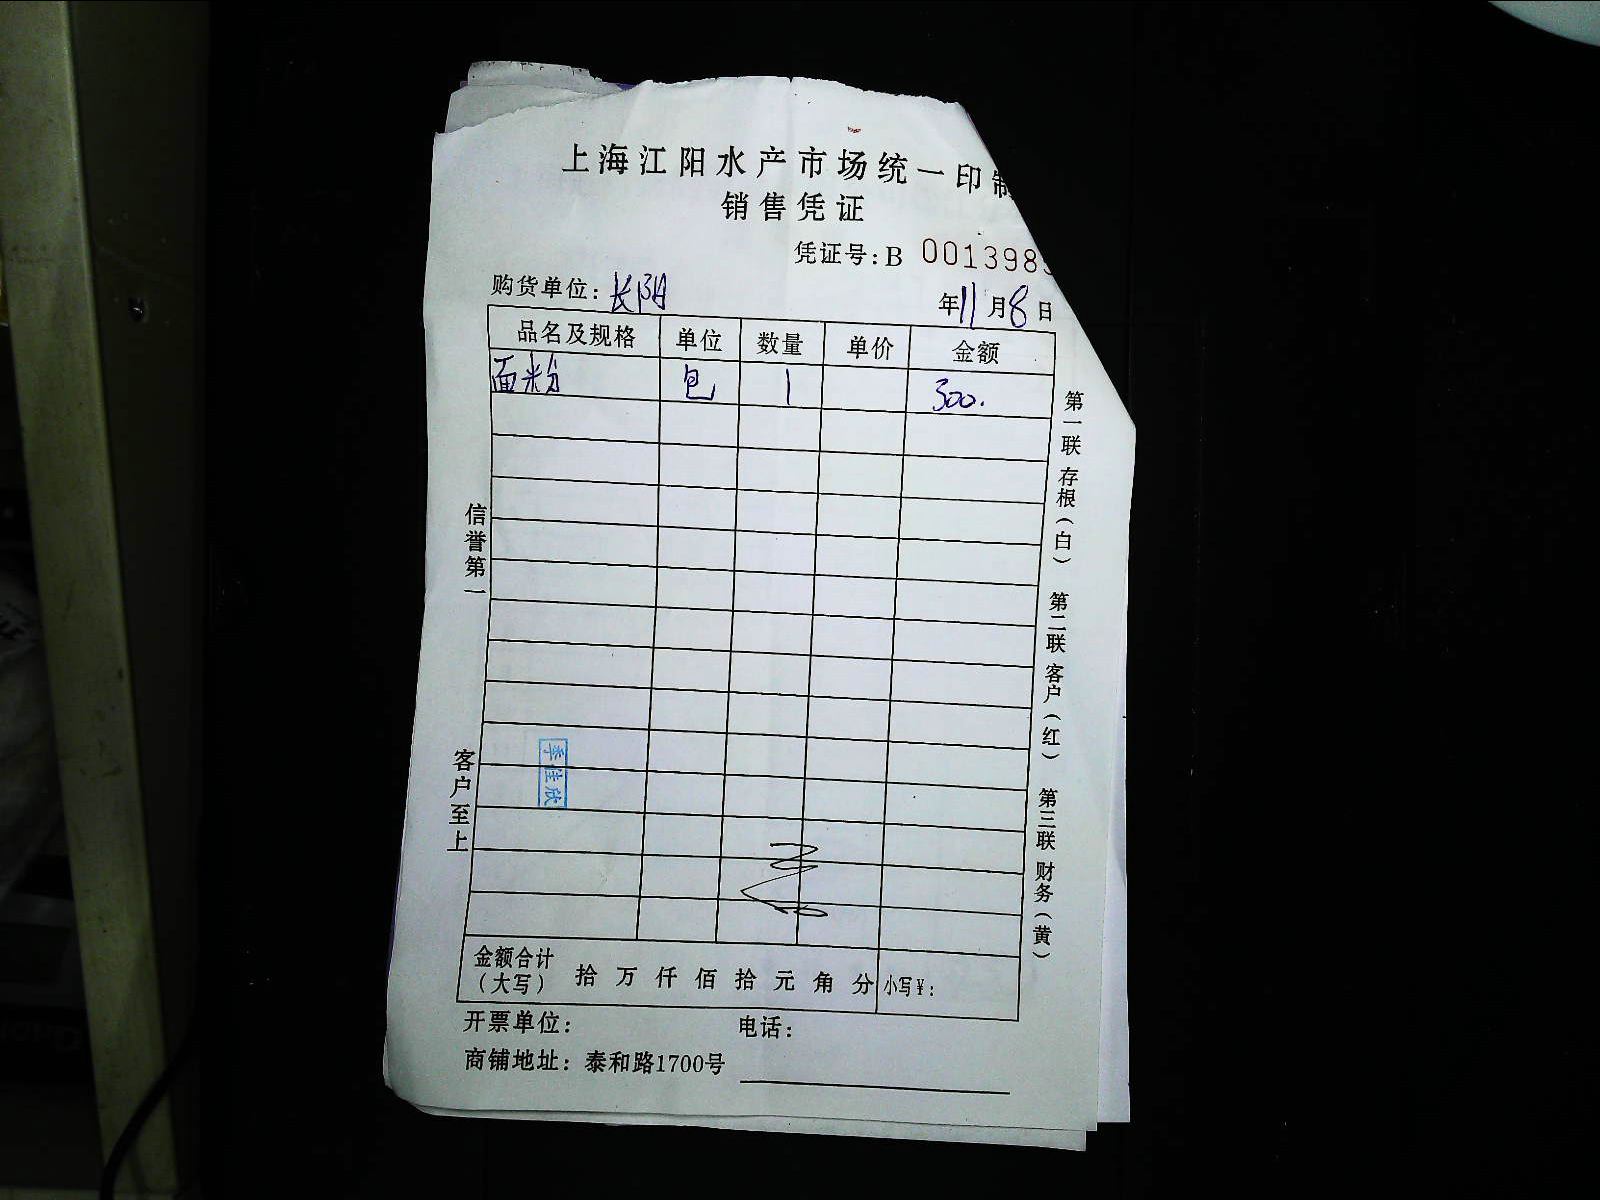 上海江阳水产市场统一印制
销售凭证
凭证号:B 0013985
购货单位: 长阳 年11月8日
品名及规格 单位 数量 单价 金额
面粉 包 1 300.
信誉第一
客户至上
第一联 存根(白) 第二联 客户(红) 第三联 财务(黄)
季佳欣
金额合计
(大写) 拾 万 仟 佰 拾 元 角 分 小写¥:
开票单位: 电话:
商铺地址: 泰和路1700号